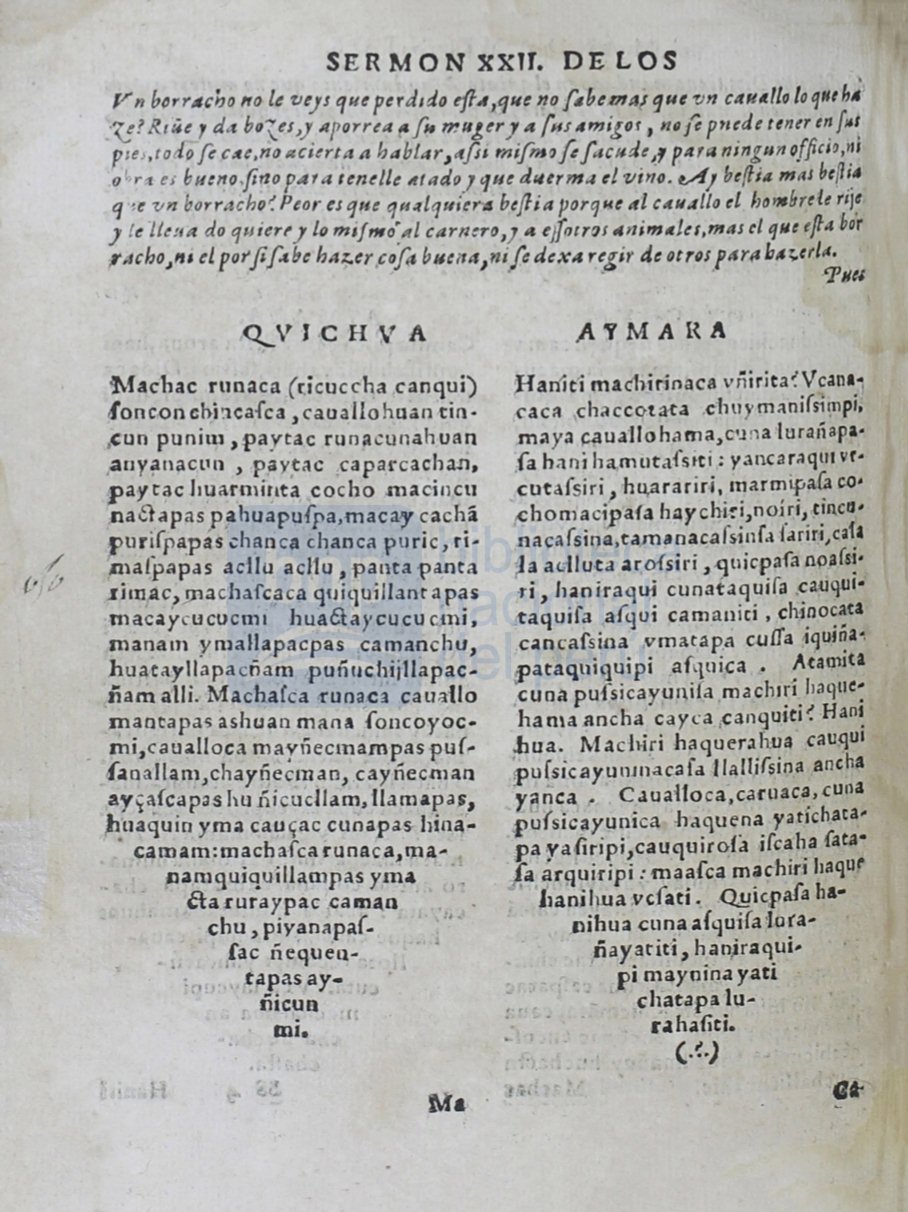 SERMON XXII. DE LOS
Vn borracho no le veys que perdido esta, que no sabe mas que vn cauallo lo que ha
ze? Riñe y da bozes, y aporrea a su muger y a sus amigos, no se puede tener en sus
pies, todo se cae, no acierta a hablar, assi mismo se sacude, y para ningun officio, ni
obra es bueno, sino para tenelle atado y que duerma el vino. Ay bestia mas bestia
que vn borracho? Peor es que qualquiera bestia porque al cauallo el hombre le rije
y le lleua do quiere y lo mismo al carnero, y a essotros animales, mas el que esta bor
racho, ni el por si sabe hazer cosa buena, ni se dexa regir de otros para hazerla.
Pues
QVICHVA
Machac runaca (ricuccha canqui)
ſoncon chincaſca, cauallohuan tin-
cun punim, paytac runacunahuan
anyanacun, paytac caparcachan,
paytac huarminta cocho macincu
nactapas pahuapuſpa, macay cachã
puriſpapas chanca chanca puric, ri-
maſpapas acllu acllu, panta panta
rimac, machaſcaca quiquillantapas
macaycucucmi huactaycucucmi,
manam ymallapacpas camanchu,
huatayllapacñam puñuchijllapac-
ñam alli. Machaſca runaca cauallo
mantapas ashuan mana ſoncoyoc-
mi, caualloca mayñecmampas puſ-
ſanallam, chayñecman, cayñecman
ayçaſcapas hu ñicucllam, llamapas,
huaquin yma cauçac cunapas hina-
camam: machaſca runaca, ma-
namquiquillampas yma
cta ruraypac caman
chu, piyanapaſ-
ſac ñequen-
tapas ay-
ñicun
mi.
Ma
AYMARA
Haniti machirinaca vñirita? Vcana-
caca chaccotata chuymaniſsimpi,
maya cauallohama, cuna lurañapa-
ſa hani hamutaſsiti: yancaraqui vr-
cutaſsiri, huarariri, marmipaſa co-
chomacipaſa haychiri, noiri, tincu-
nacaſsina, tamanacaſsinſa ſariri, caſa
ſa aclluta aroſsiri, quicpaſa noaſsi-
ri, haniraqui cunataquiſa cauqui-
taquiſa aſqui camaniti, chinocata
cancaſsina vmatapa cuſſa iquiña-
pataquiquipi aſquica. Atamita
cuna puſsicayuniſa machiri haque-
hama ancha cayca canquiti? Hani
hua. Machiri haquerahua cauqui
puſsicayuninacaſa llalliſsina ancha
yanca. Caualloca, caruaca, cuna
puſsicayunica haquena yatichata-
pa yaſiripi, cauquiroſa iſcaha ſata-
ſa arquiripi: maaſca machiri haque
hanihua vcſati. Quicpaſa ha-
nihua cuna aſquiſa lura-
ñayatiti, haniraqui-
pi maynina yati
chatapa lu-
rahaſiti.
(.⁖.)
Ca